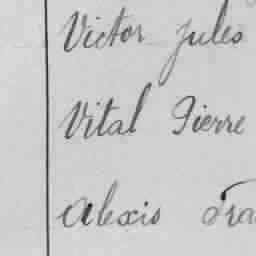 Victor Jules
Vital Pierre
Alexis Fra